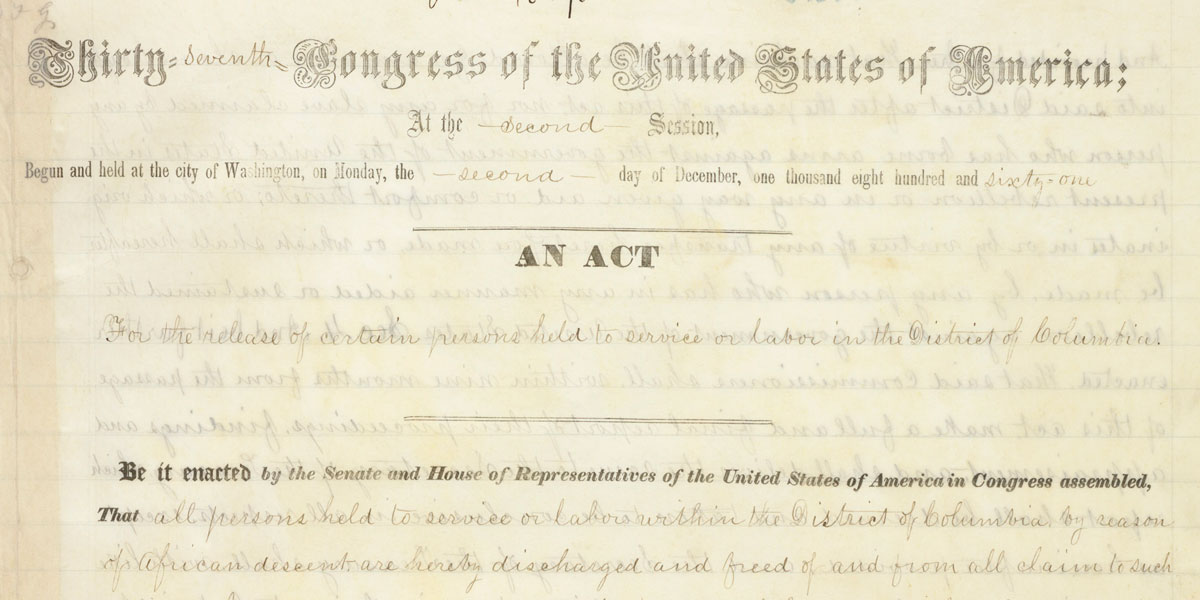 Thirty-Seventh Congress of the United States of America;
At the second Session,
Begun and held at the city of Washington, on Monday, the second day of December, one thousand eight hundred and sixty-one
AN ACT
For the release of certain persons held to service or labor in the District of Columbia.
Be it enacted by the Senate and House of Representatives of the United States of America in Congress assembled,
That all persons held to service or labor within the District of Columbia by reason
of African descent are hereby discharged and freed of and from all claim to such